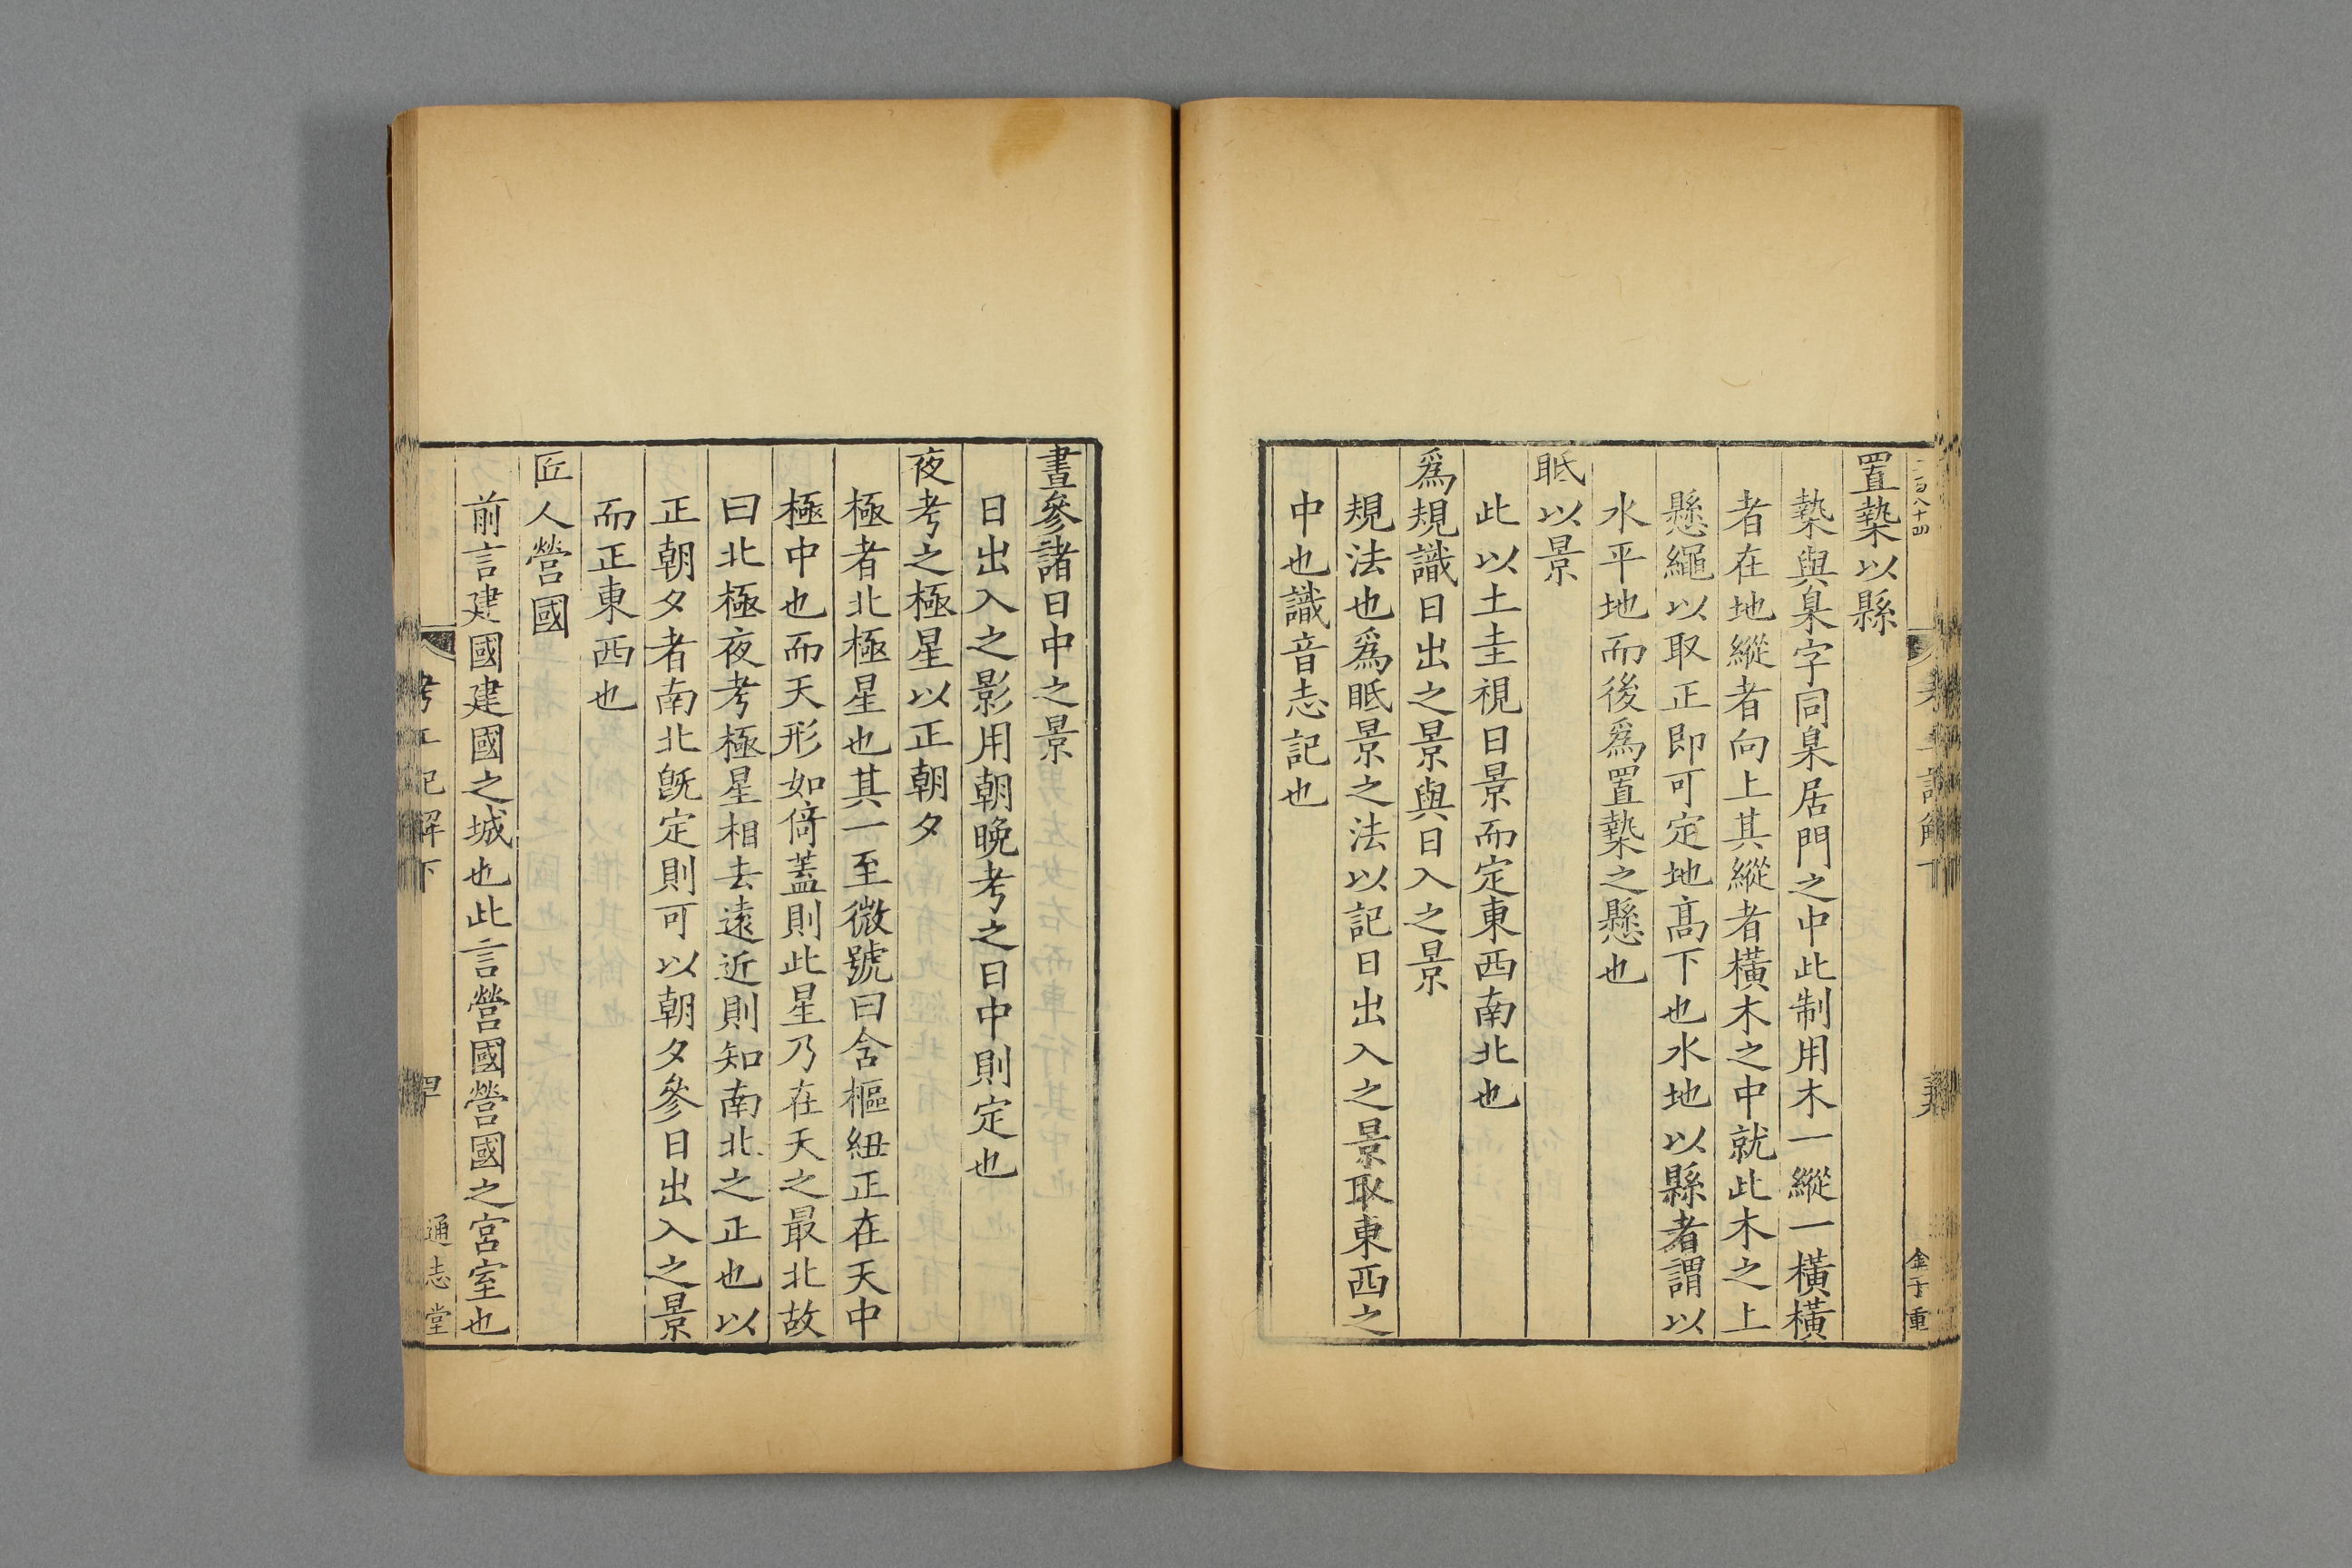 二百八十四
置槷以縣
槷與臬字同臬居門之中此制用木一縱一橫橫
者在地縱者向上其縱者橫木之中就此木之上
懸繩以取正即可定地高下也水地以縣者謂以
水平地而後爲置槷之懸也
眡以景
此以土圭視日景而定東西南北也
爲規識日出之景與日入之景
規法也爲眡景之法以記日出入之景取東西之
中也識音志記也
金子重
晝參諸日中之景
日出入之影用朝晚考之日中則定也
夜考之極星以正朝夕
極者北極星也其一至微號曰含樞紐正在天中
極中也而天形如倚蓋則此星乃在天之最北故
曰北極夜考極星相去遠近則知南北之正也以
正朝夕者南北旣定則可以朝夕參日出入之景
而正東西也
匠人營國
前言建國建國之城也此言營國營國之宮室也
考工記解下
通志堂